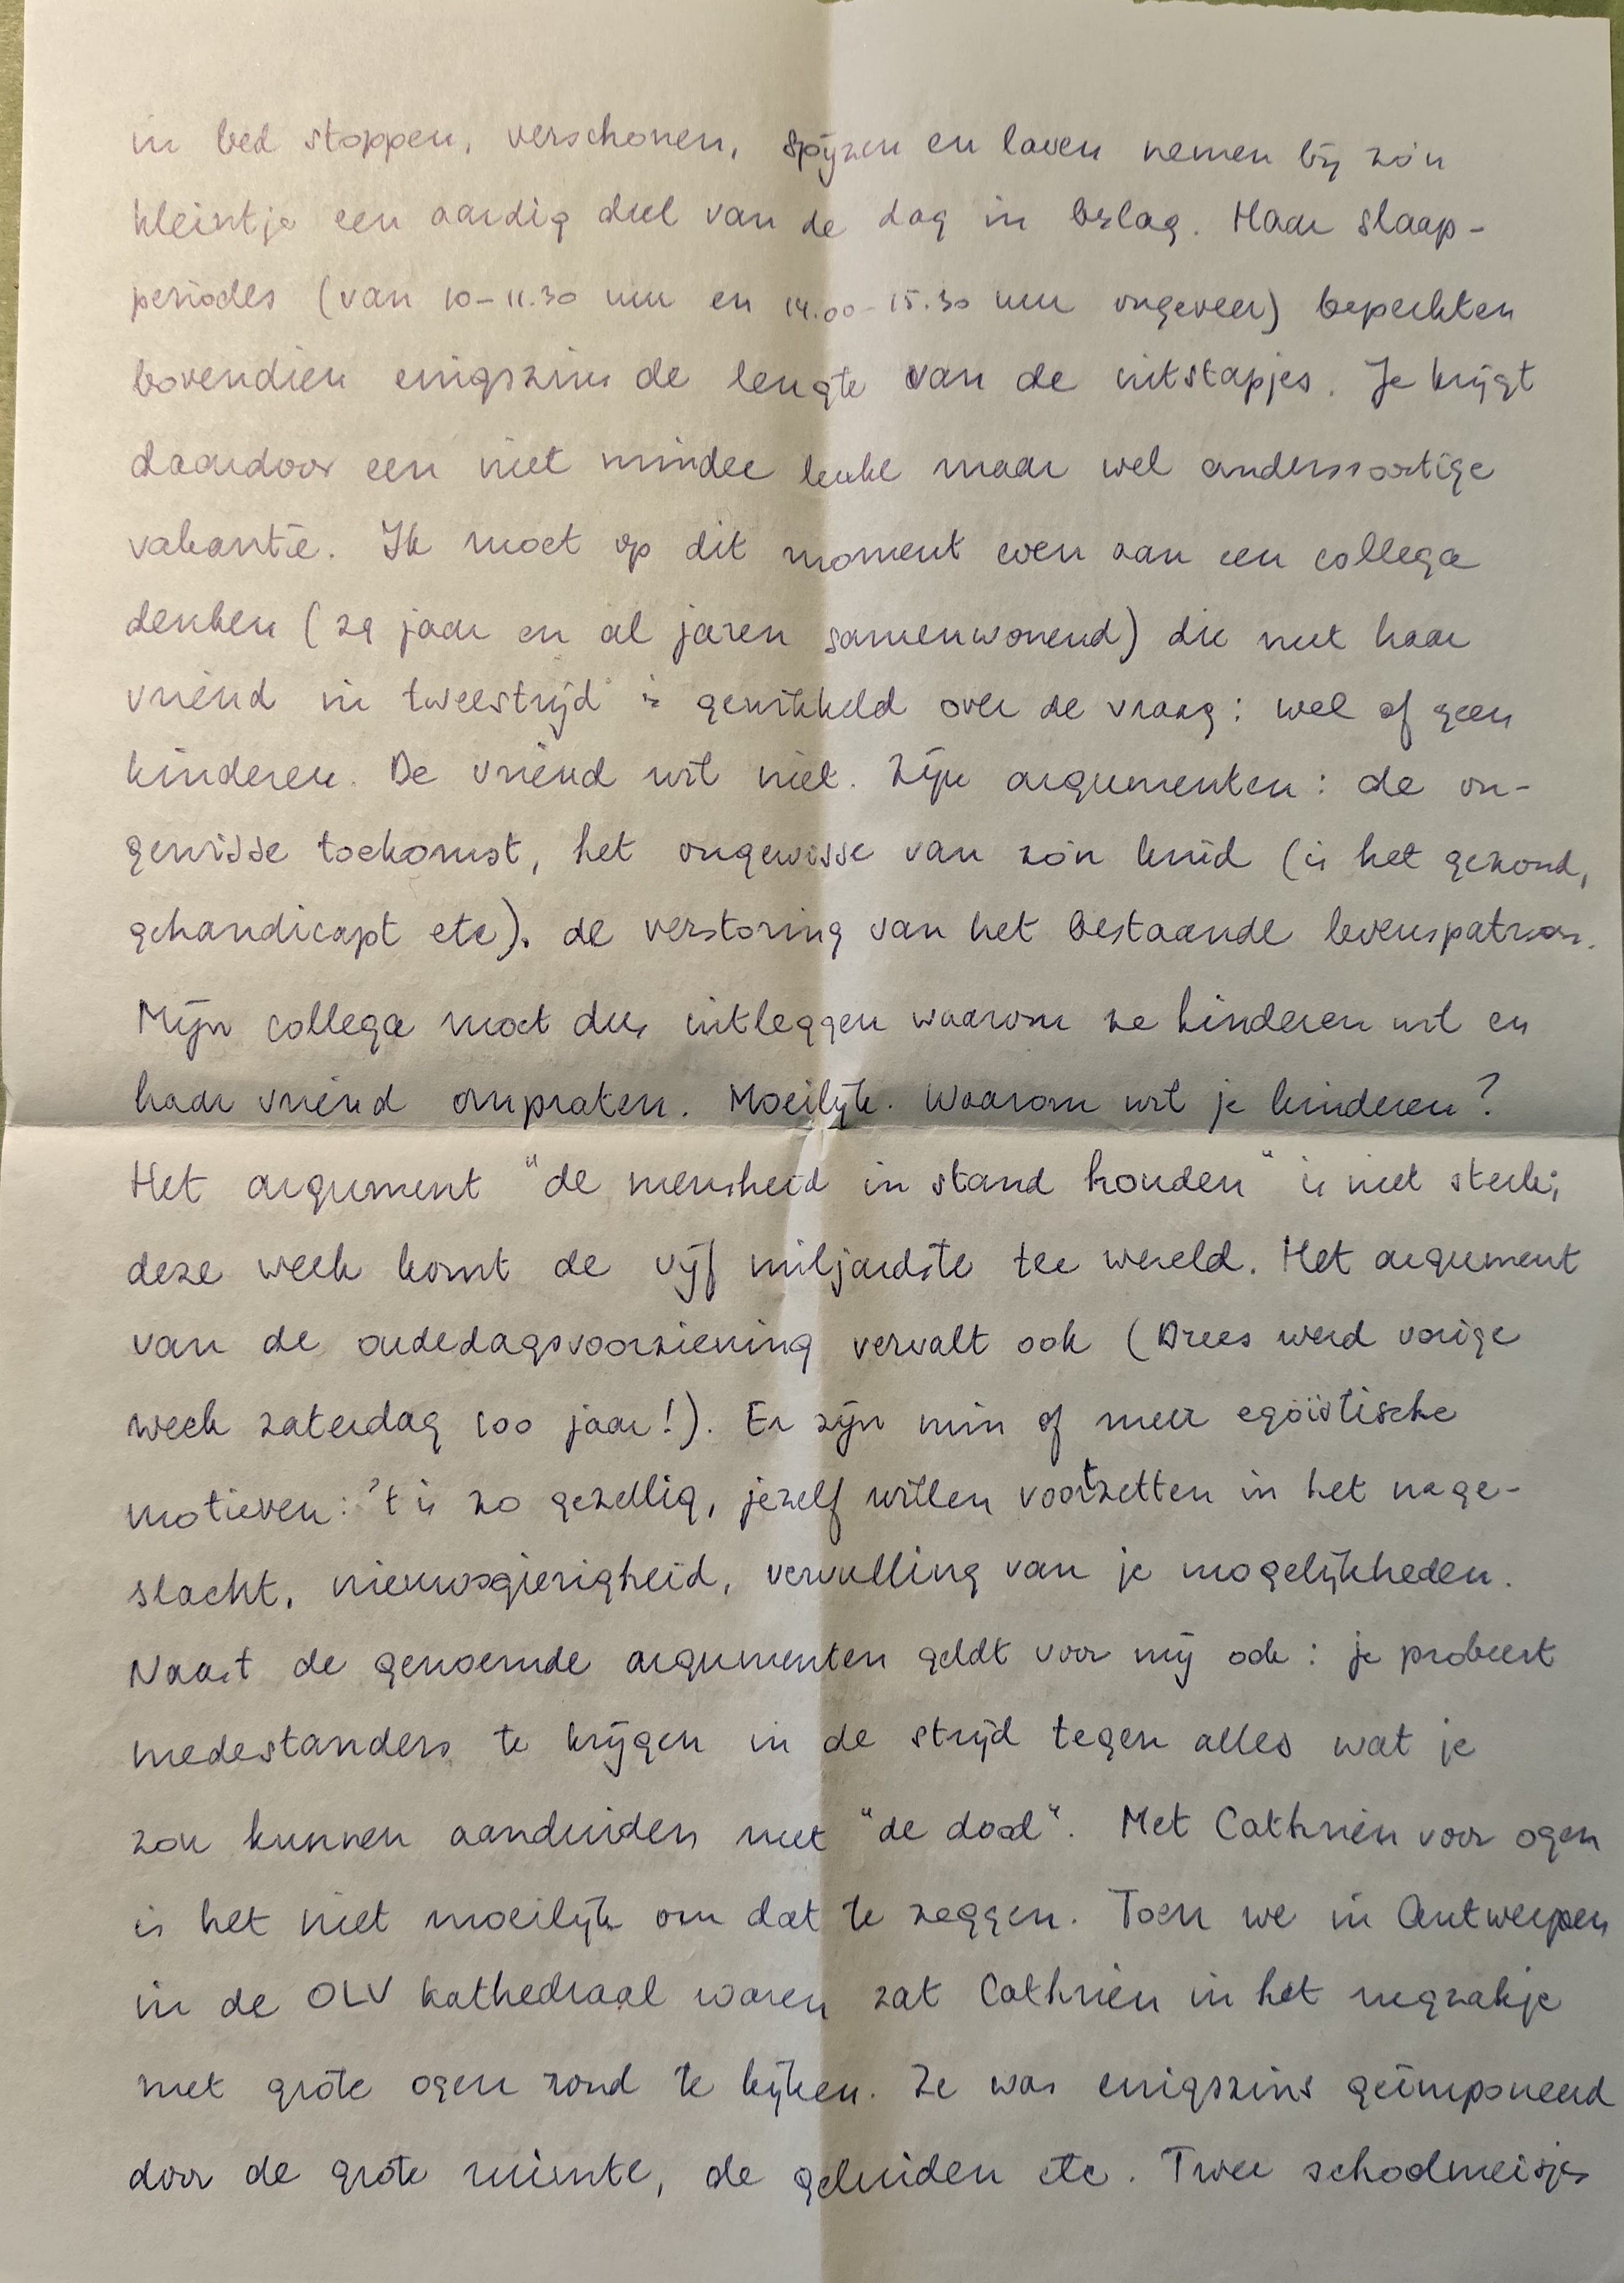 in bed stoppen, verschonen, spijzen en laven nemen bij zo'n
kleintje een aardig deel van de dag in beslag. Haar slaap-
periodes (van 10-11.30 uur en 14.00-15.30 uur ongeveer) beperkten
bovendien enigszins de lengte van de uitstapjes. Je krijgt
daardoor een niet minder leuke maar wel anderssoortige
vakantie. Ik moet op dit moment even aan een collega
denken (29 jaar en al jaren samenwonend) die met haar
vriend in tweestrijd is gewikkeld over de vraag: wel of geen
kinderen. De vriend wil niet. Zijn argumenten: de on-
gewisse toekomst, het ongewisse van zo'n kind (is het gezond,
gehandicapt etc). de verstoring van het bestaande levenspatroon.
Mijn collega moet dus uitleggen waarom ze kinderen wil en
haar vriend ompraten. Moeilijk. Waarom wil je kinderen?
Het argument "de mensheid in stand houden" is niet sterk;
deze week komt de vijf miljardste ter wereld. Het argument
van de oudedagsvoorziening vervalt ook (Drees werd vorige
week zaterdag 100 jaar!). Er zijn min of meer egoïstische
motieven: 't is zo gezellig, jezelf willen voortzetten in het nage-
slacht, nieuwsgierigheid, vervulling van je mogelijkheden.
Naast de genoemde argumenten geldt voor mij ook: je probeert
medestanders te krijgen in de strijd tegen alles wat je
zou kunnen aanduiden met "de dood". Met Cathrien voor ogen
is het niet moeilijk om dat te zeggen. Toen we in Antwerpen
in de OLV kathedraal waren zat Cathrien in het rugzakje
met grote ogen rond te kijken. Ze was enigszins geïmponeerd
door de grote ruimte, de geluiden etc. Twee schoolmeisjes